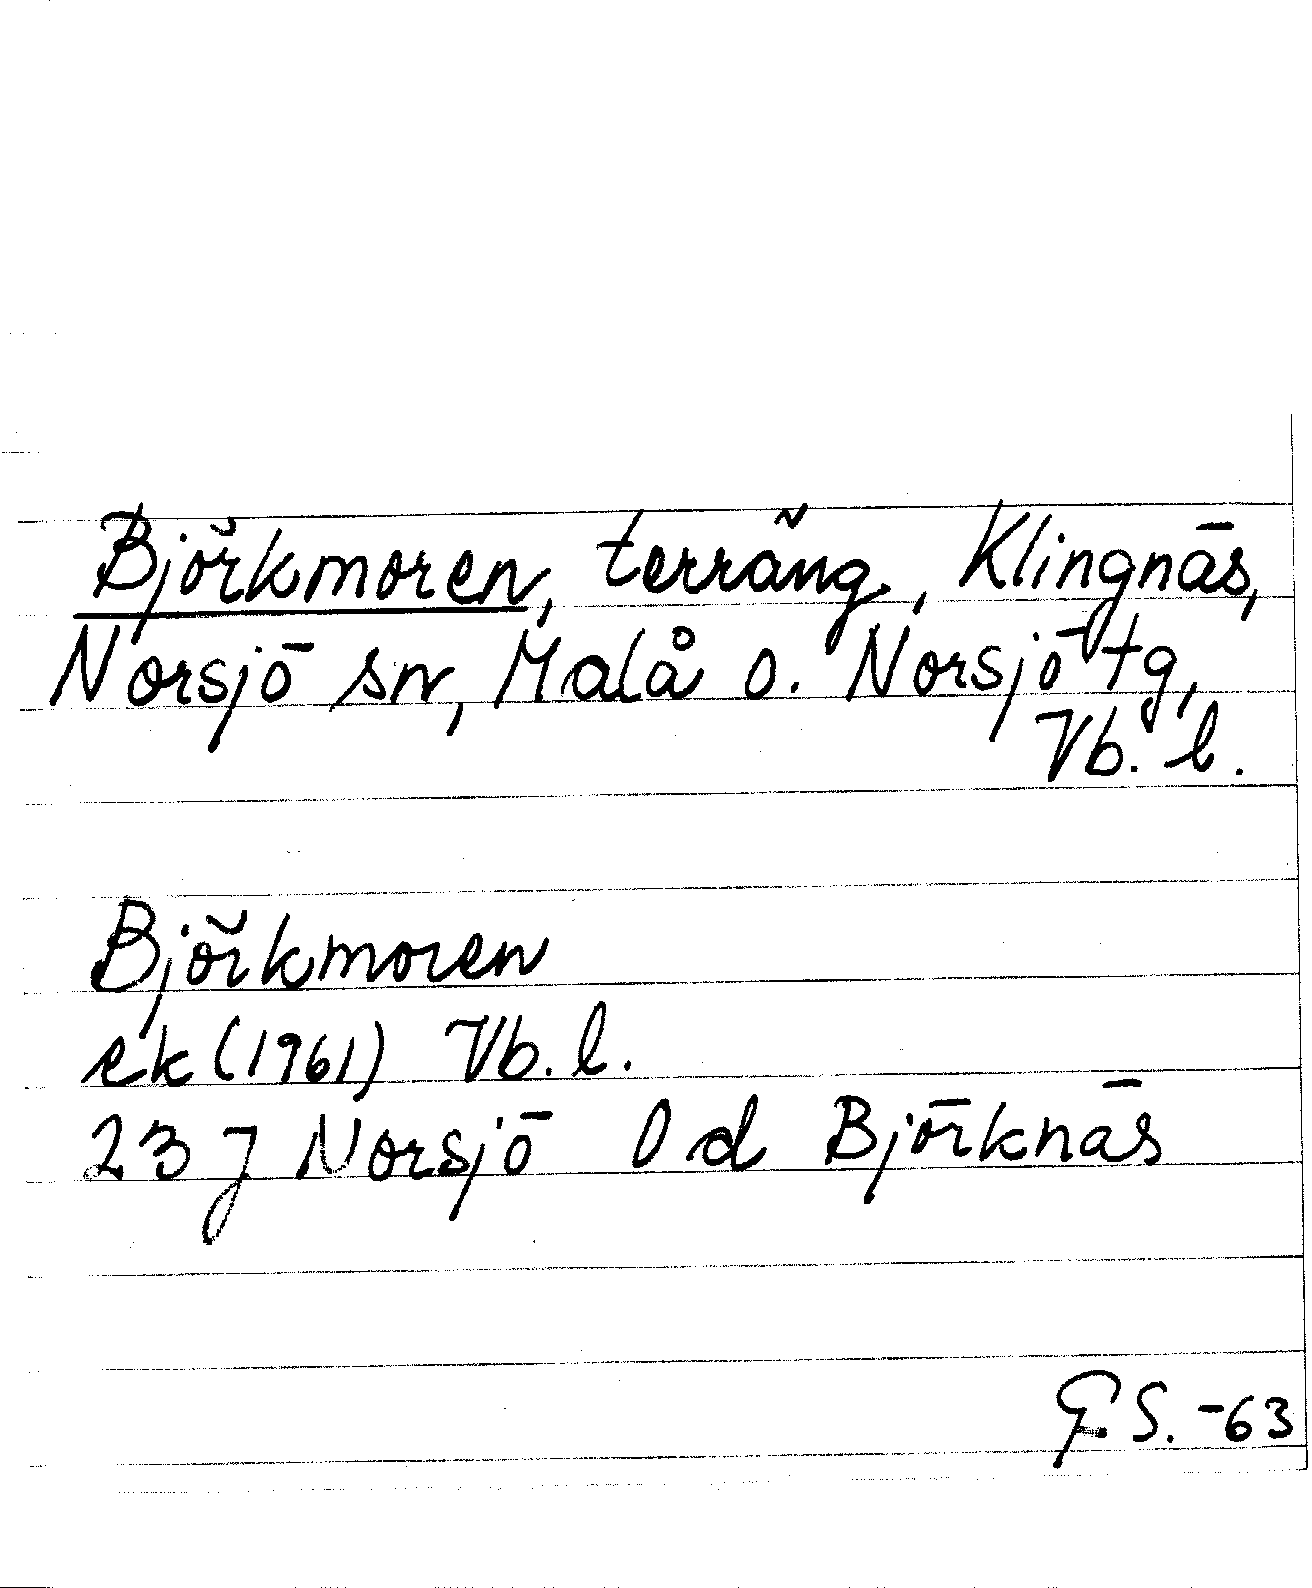 Björkmoren, terräng, Klingnäs,
Norsjö sn, Malå o. Norsjö tg,
Vb. l.
Björkmoren
ek (1961) Vb. l.
23 J Norsjö 0 d Björknäs
G. S. -63